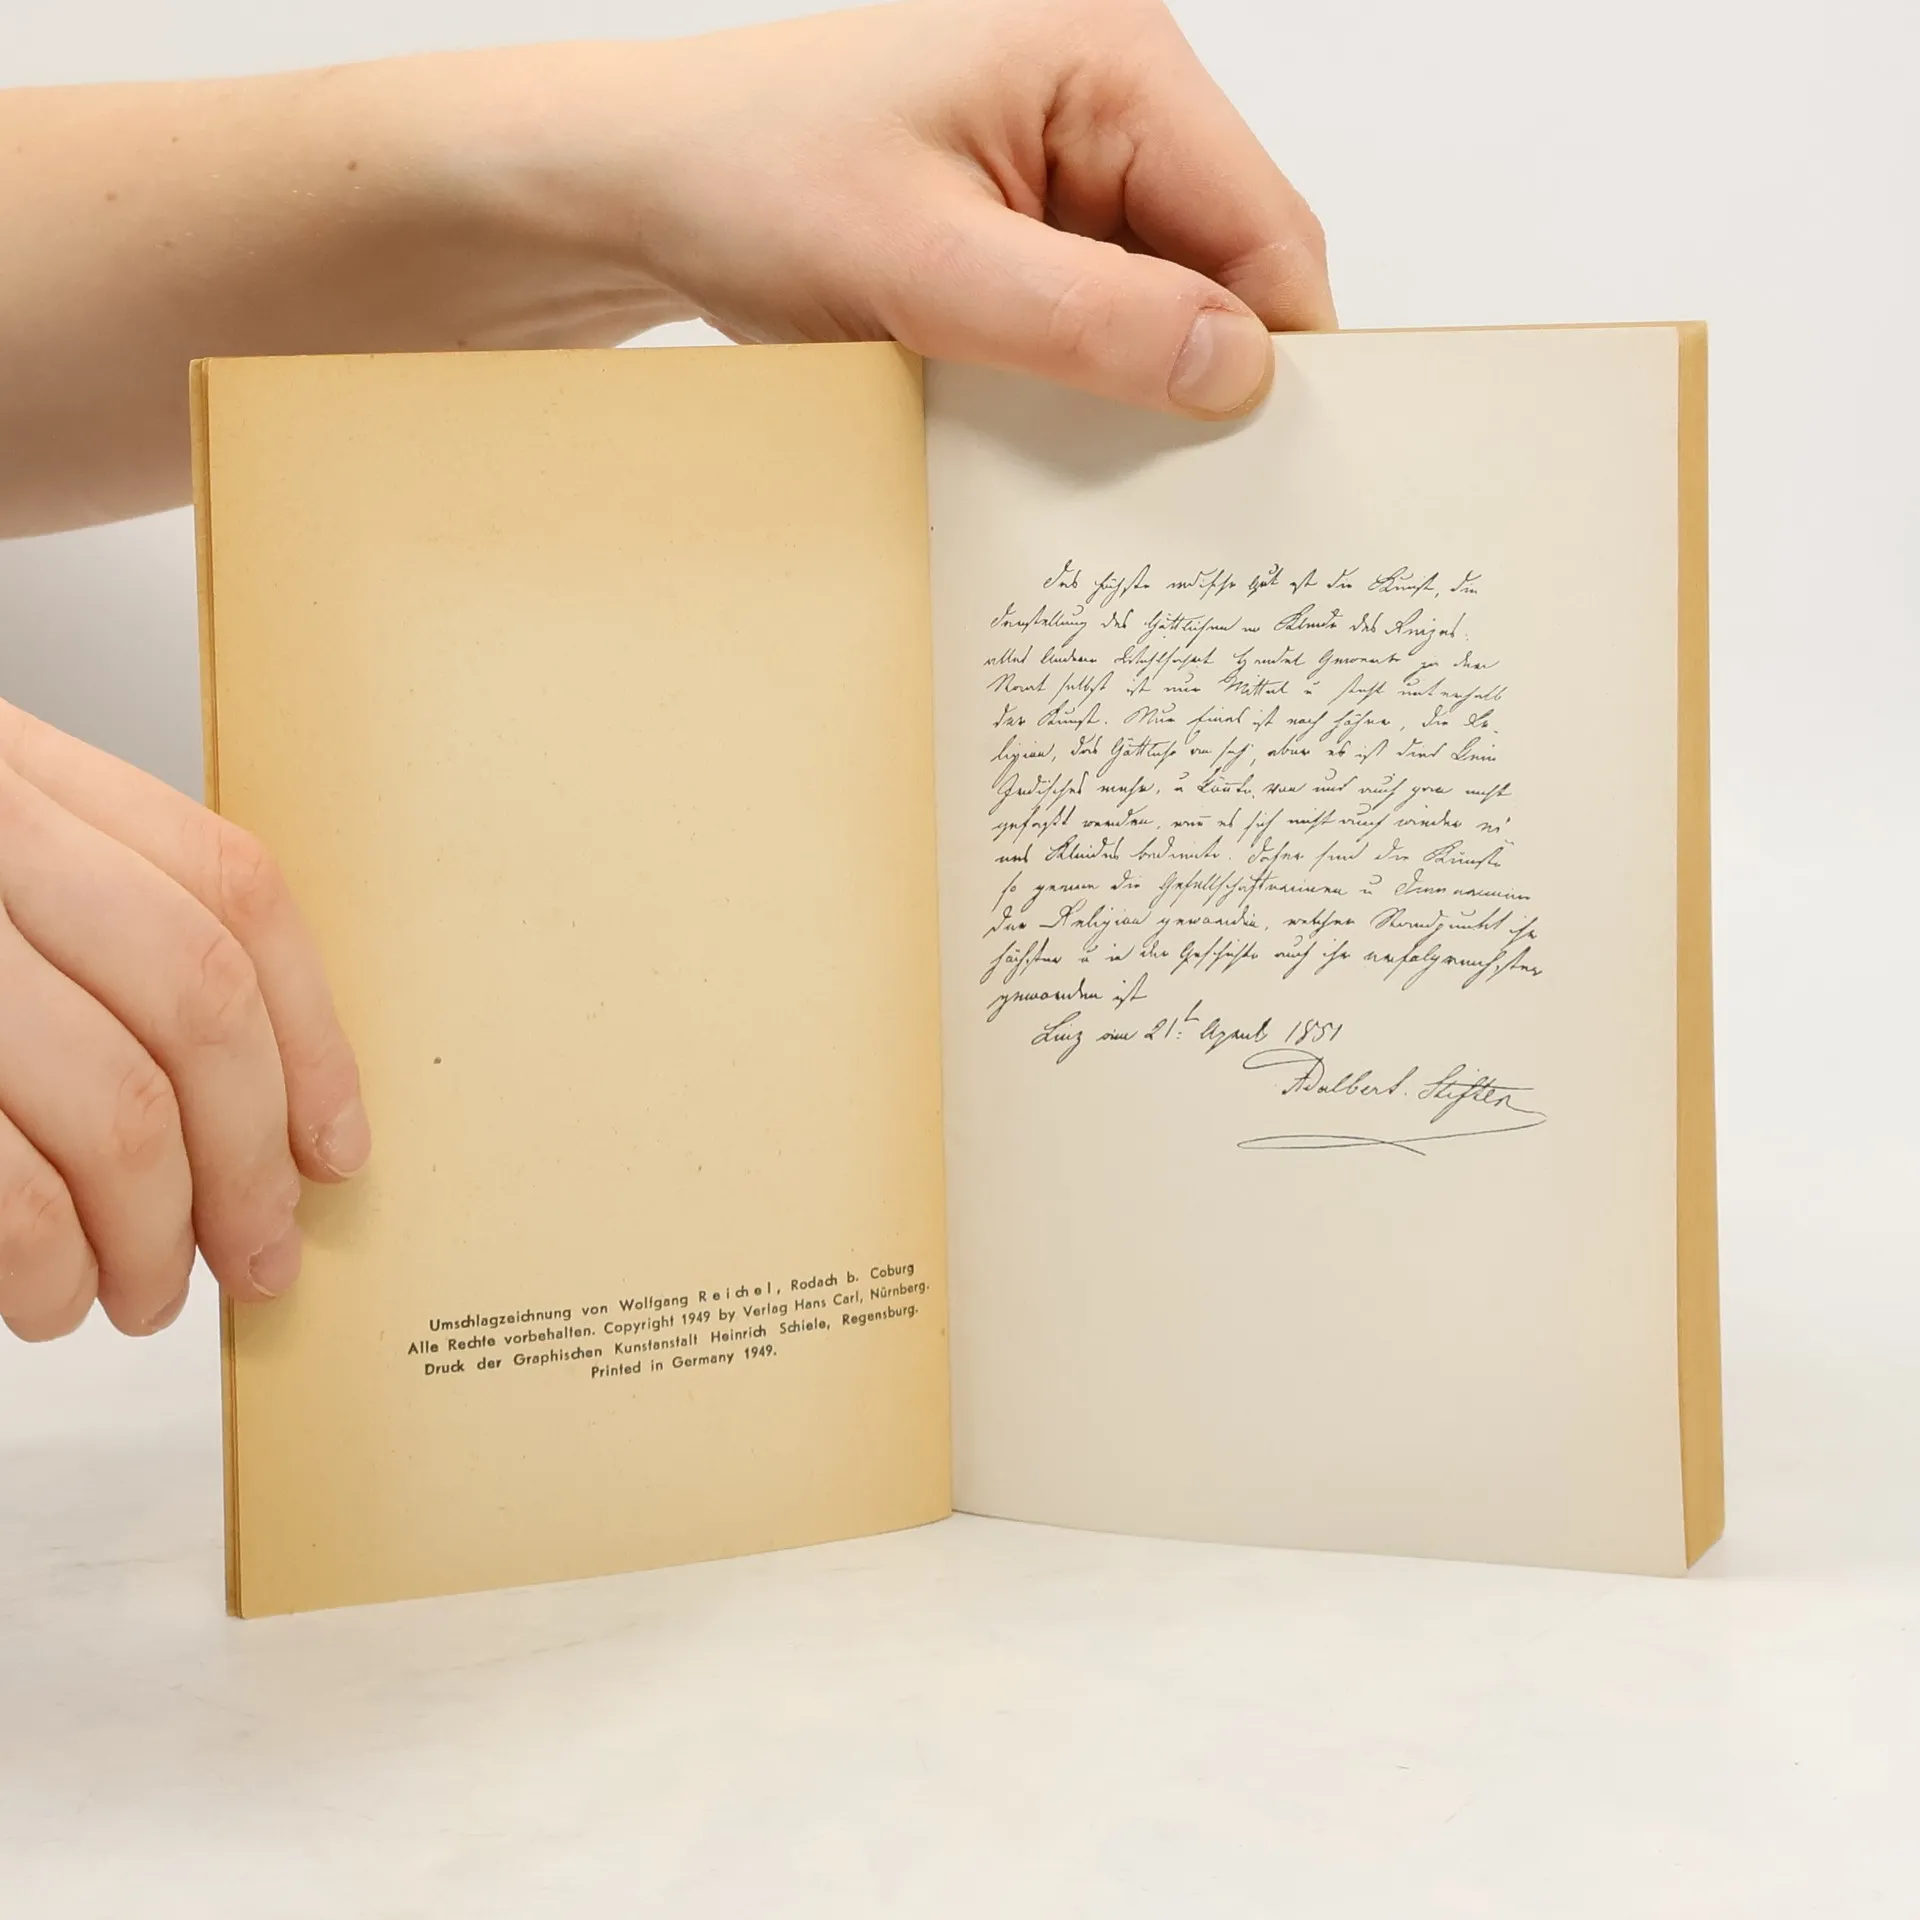 Umschlagzeichnung von Wolfgang Reichel, Rodach b. Coburg
Alle Rechte vorbehalten. Copyright 1949 by Verlag Hans Carl, Nürnberg.
Druck der Graphischen Kunstanstalt Heinrich Schiele, Regensburg.
Printed in Germany 1949.
Das höchste irdische Gut ist die Kunst, die
Darstellung des Göttlichen im Kleide des Reizes.
alles Andere Handel Gewerbe ja der
Staat selbst ist nur Mittel u steht unterhalb
der Kunst. Nur Eines ist noch höher, die Re-
ligion, das Göttliche an sich, aber es ist dies kein
Irdisches mehr, u köñte von uns auch gar nicht
gefaßt werden, weñ es sich nicht auch wieder ei-
nes Kleides bediente. Daher sind die Künste
so gerne die Gesellschafterinen u Dienerinen
der Religion geworden, welcher Standpunkt ihr
höchster u in der Geschichte auch ihr erfolgreichster
geworden ist
Linz am 21t April 1851
Adalbert Stifter